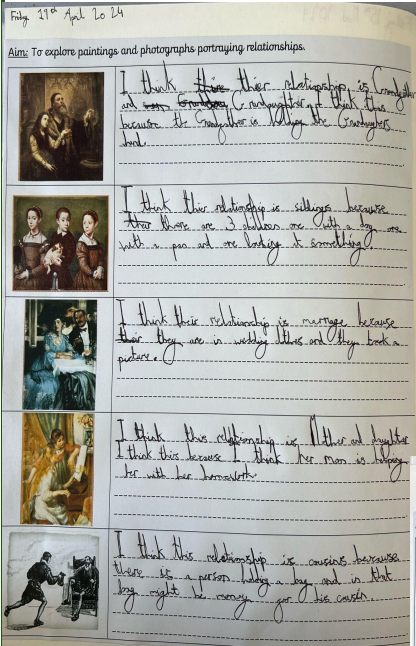 Friday 19th April 2024
Aim: To explore paintings and photographs portraying relationships.
I think thier relationship is Grandfather
and Grandaughter I think this
because the Grandfather is holding the Grandaughters
hand.
I think thier relationship is siblings because
there are 3 children one with a dog one
with a pan and one looking at something.
I think their relationship is marriage because
they are in wedding clothes and they took a
picture.
I think this relationship is Mother and daughter
I think this because I think her mom is helping
her with her homework.
I think this relationship is cousins because
there is a person holding a bag and in that
bag might be money for his cousin.